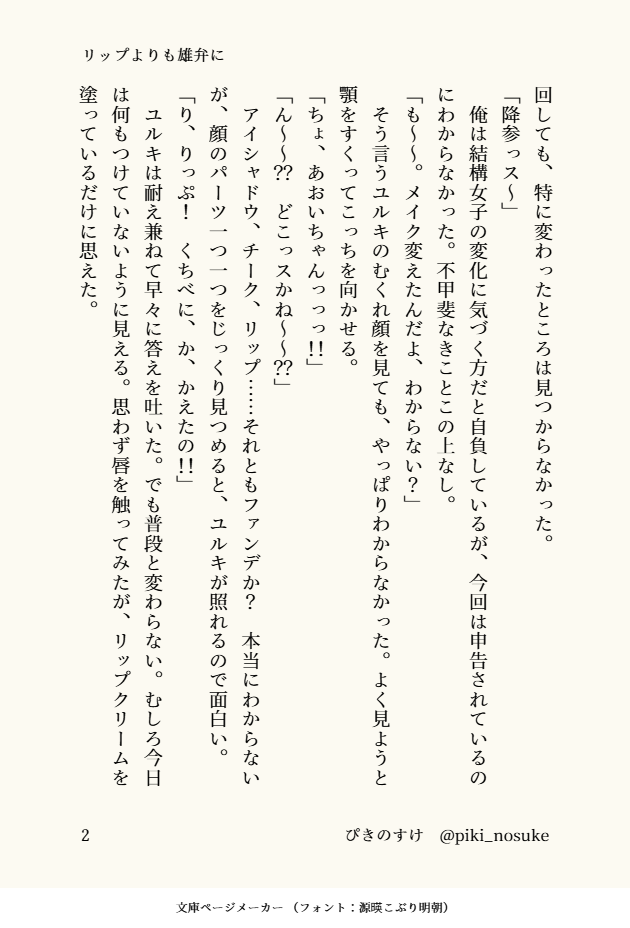 リップよりも雄弁に
回しても、特に変わったところは見つからなかった。
「降参っス〜」
　俺は結構女子の変化に気づく方だと自負しているが、今回は申告されているの
にわからなかった。不甲斐なきことこの上なし。
「も〜〜。メイク変えたんだよ、わからない？」
　そう言うユルキのむくれ顔を見ても、やっぱりわからなかった。よく見ようと
顎をすくってこっちを向かせる。
「ちょ、あおいちゃんっっっ!!」
「ん〜〜??　どこっスかね〜〜??」
　アイシャドウ、チーク、リップ……それともファンデか？　本当にわからない
が、顔のパーツ一つ一つをじっくり見つめると、ユルキが照れるので面白い。
「り、りっぷ！　くちべに、か、かえたの!!」
　ユルキは耐え兼ねて早々に答えを吐いた。でも普段と変わらない。むしろ今日
は何もつけていないように見える。思わず唇を触ってみたが、リップクリームを
塗っているだけに思えた。
2
ぴきのすけ　@piki_nosuke
文庫ページメーカー （フォント：源暎こぶり明朝）